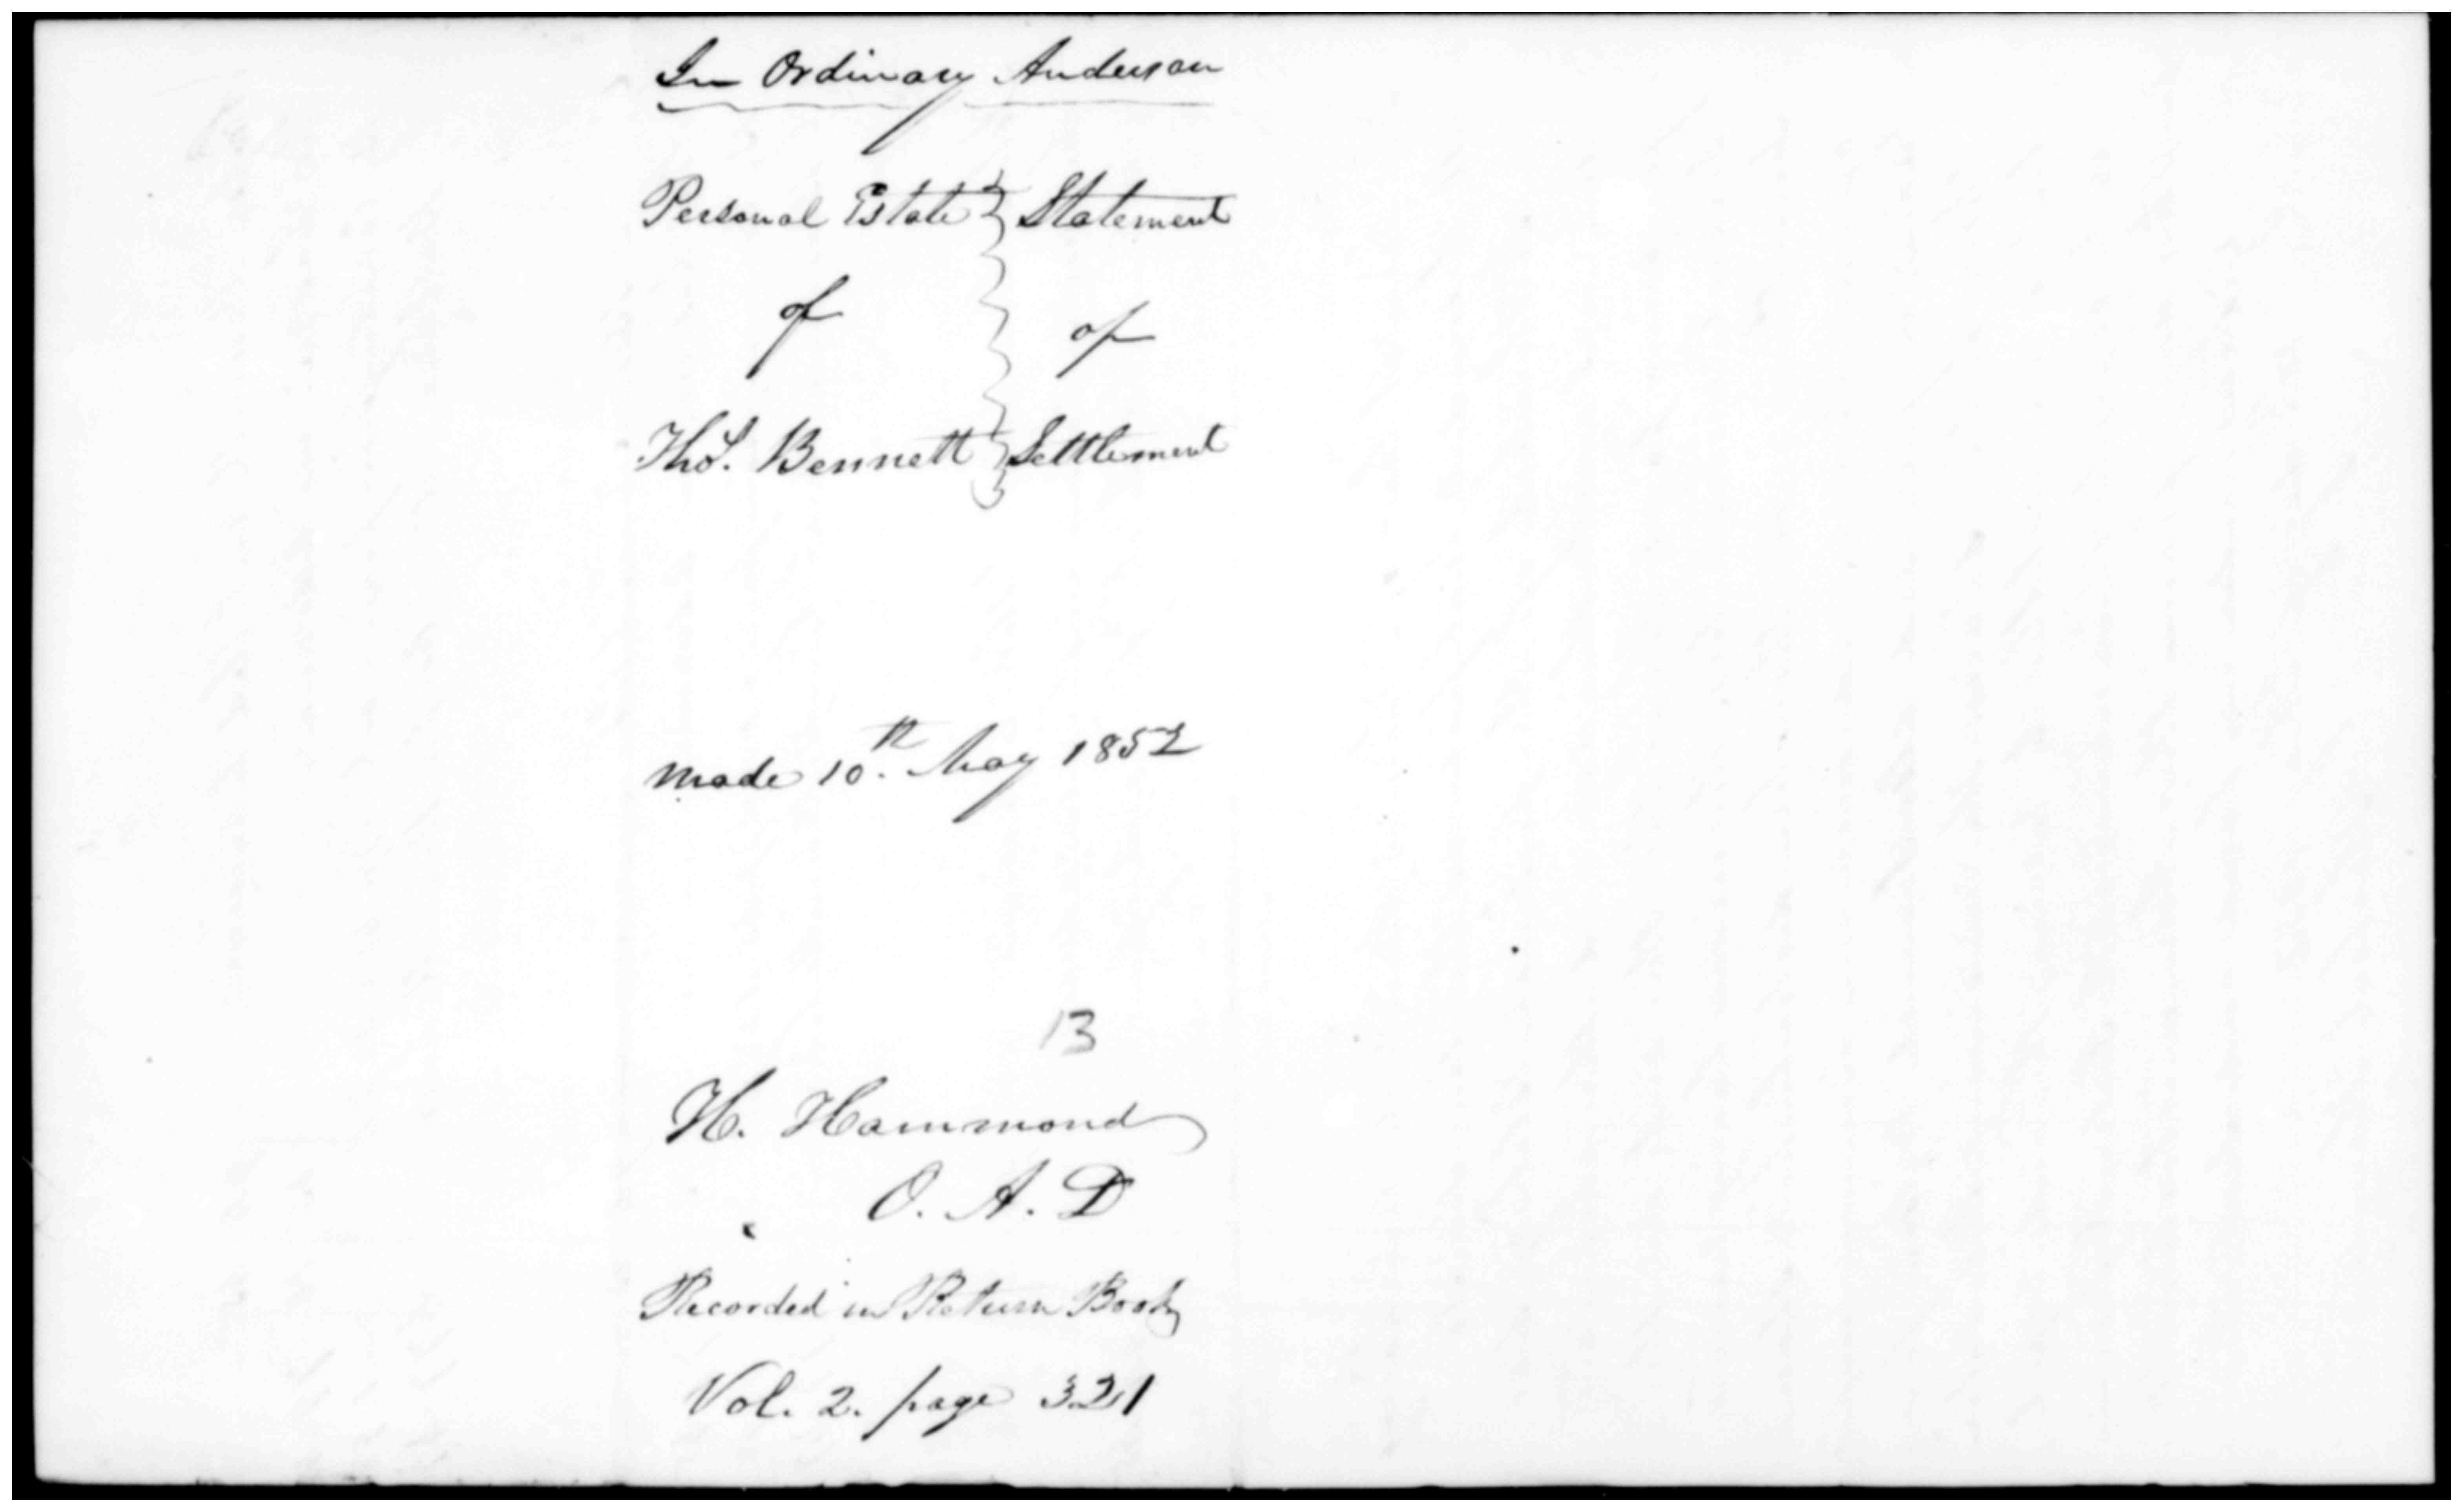 In Ordinary Anderson
Personal Estate } Statement
of } of
Thos. Bennett } Settlement
made 10th. May 1852
13
H. Hammond
O. A. D
Recorded in Return Book
Vol. 2. page 321